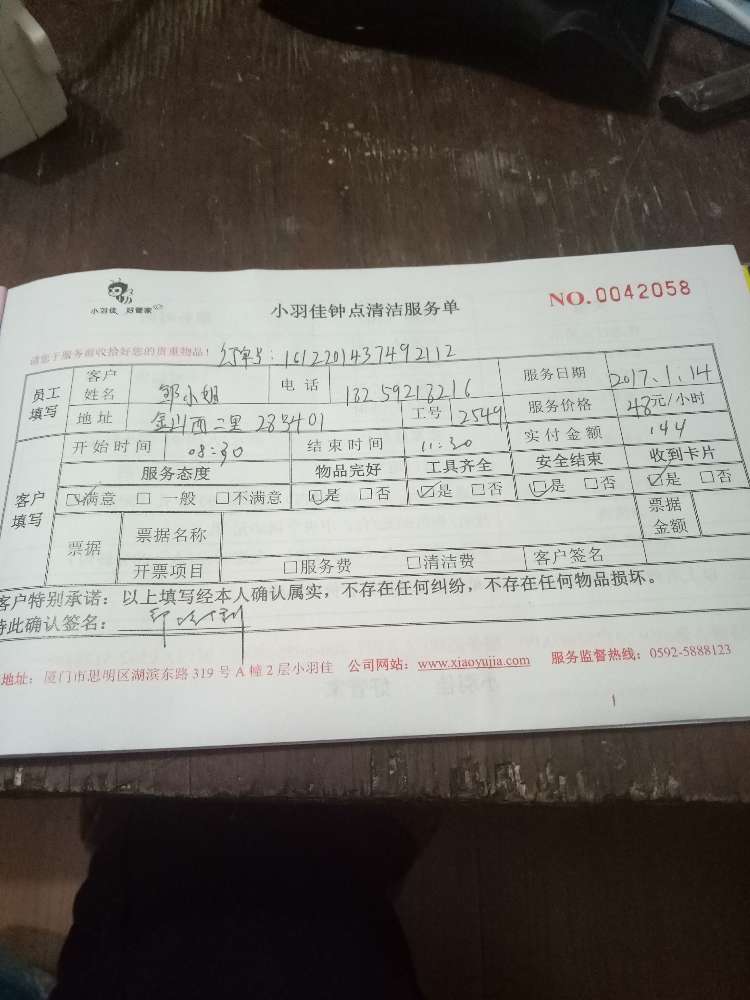 小羽佳 好管家
小羽佳钟点清洁服务单
NO.0042058
请您于服务前收拾好您的贵重物品！ 订单号：1612201437492112
员工填写 客户姓名 邹小姐 电话 18259213216 服务日期 2017.1.14
地址 金山西二里 283401 工号 2549 服务价格 48元/小时
客户填写 开始时间 08:30 结束时间 11:30 实付金额 144
服务态度 物品完好 工具齐全 安全结束 收到卡片
☑满意 □一般 □不满意 ☑是 □否 ☑是 □否 ☑是 □否 ☑是 □否
票据 票据名称 票据金额
开票项目 □服务费 □清洁费 客户签名
客户特别承诺：以上填写经本人确认属实，不存在任何纠纷，不存在任何物品损坏。
特此确认签名：
地址：厦门市思明区湖滨东路319号A幢2层小羽佳 公司网站：www.xiaoyujia.com 服务监督热线：0592-5888123
1